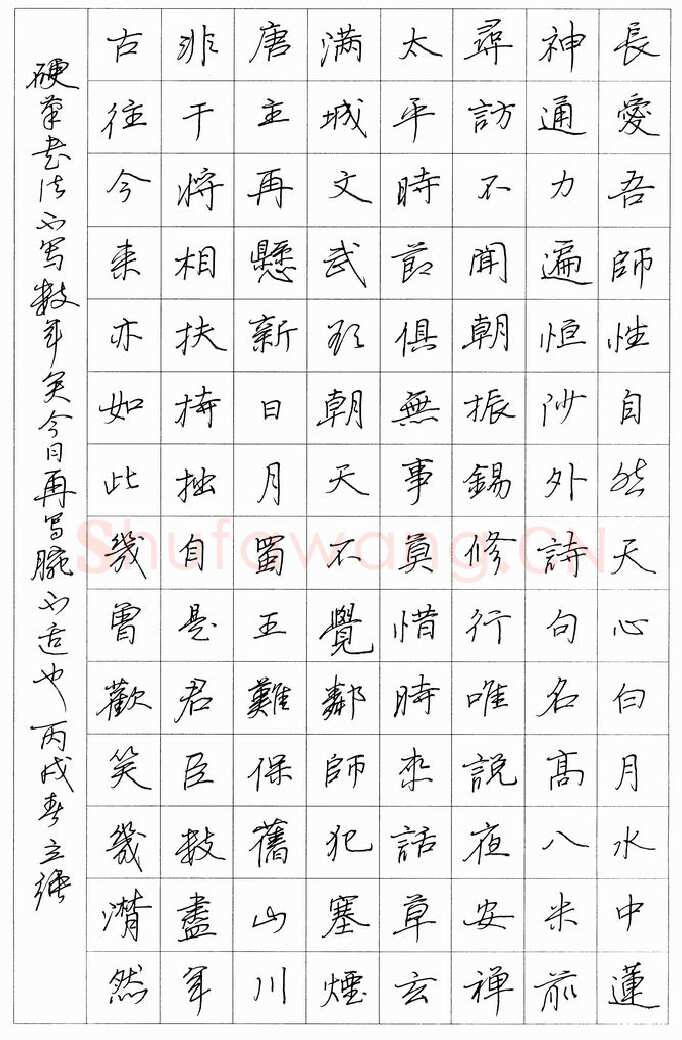 長愛吾師性自然天心白月水中蓮
神通力遍恒沙外詩句名高八米前
尋訪不聞朝振錫修行唯説夜安禅
太平時節俱無事莫惜時来話草玄
满城文武欲朝天不覺鄰師犯塞煙
唐主再懸新日月蜀王難保舊山川
非干将相扶持拙自是君臣数盡年
古往今来亦如此幾曾歡笑幾潸然
硬筆书法不写数年矣今日再写腕不适也丙戌春立强
Shufawang.CN